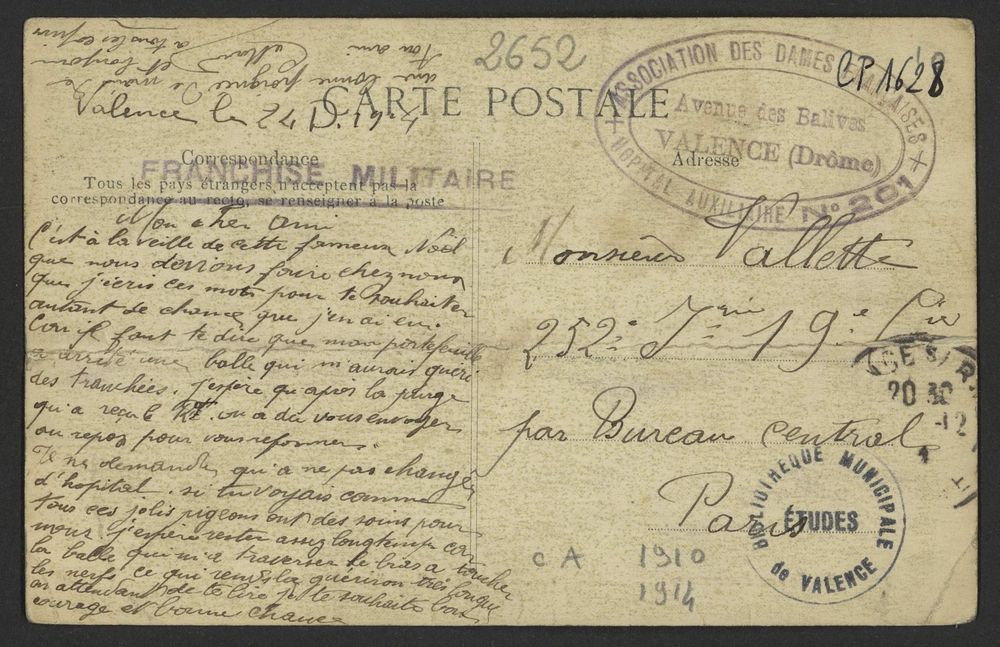 2652
CP 1628
ASSOCIATION DES DAMES FRANÇAISES
Avenue des Balives
VALENCE (Drôme)
HOPITAL AUXILIAIRE No 201
CARTE POSTALE
Valence le 24 D
Correspondance
Adresse
FRANCHISE MILITAIRE
Tous les pays étrangers n'acceptent pas la
correspondance au recto, se renseigner à la poste
Mon cher ami
C'est à la veille de cette fameux Noël
que nous devions faire chez nous
que j'écris ces mots pour te souhaiter
autant de chance que j'en ai eu.
Car il faut te dire que mon portefeuille
a arrêté une balle qui m'aurais guéri
des tranchées. j'espère qu'après la purge
qu'a reçu le on a du vous envoyer
au repos pour vous reformer.
Je ne demande qu'a ne pas changer
d'hopital. si tu voyais comme
tous ces jolis pigeons ont des soins pour
nous. j'espère rester assez longtemps car
la balle qui m'a traverser le bras a toucher
les nerfs ce qui rend la guérison très longue
en attendant de te lire je te souhaite bon
courage et bonne chance
une bonne poigne de main de
ton ami
et bonjour
a tous les copains
Monsieur Vallette
252e 19e Cie
par Bureau central
Paris
20 30
-12
BIBLIOTHEQUE MUNICIPALE
ÉTUDES
de VALENCE
CA 1910
1914